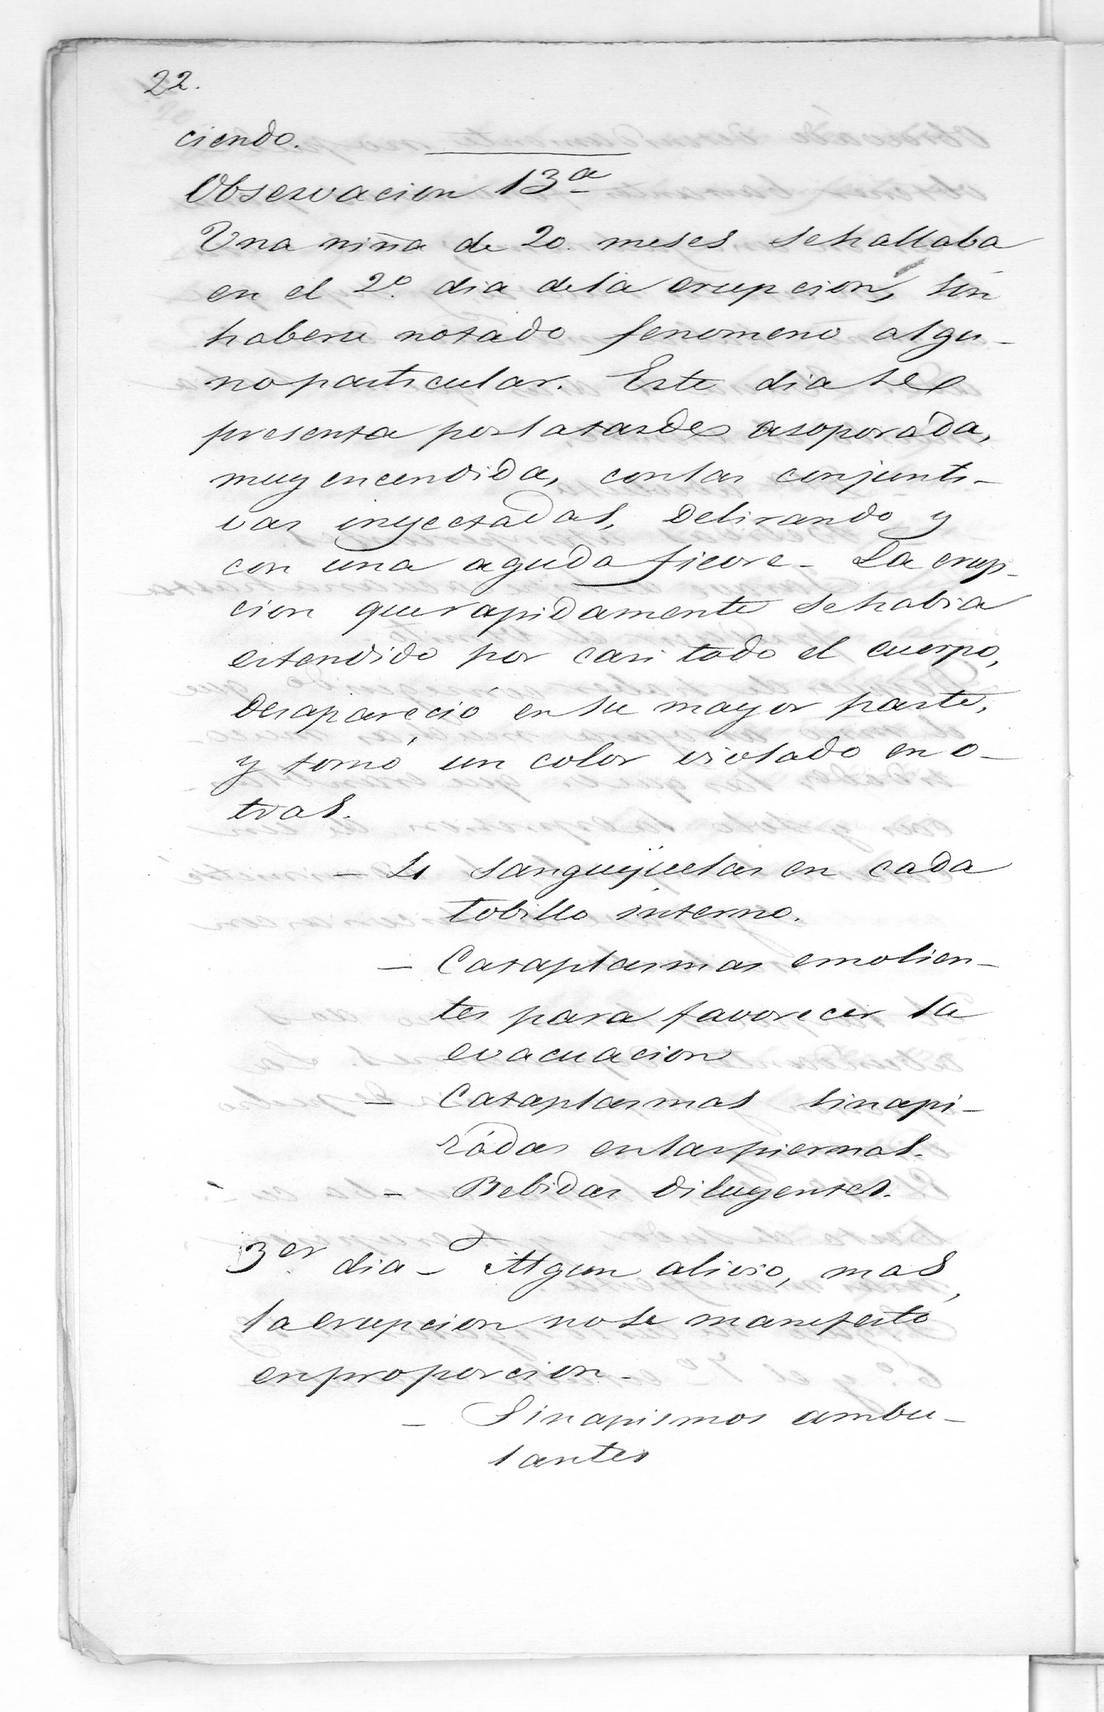 22.
ciendo.
Observacion 13ª
Una niña de 20 meses se hallaba
en el 2º dia de la erupcion, sin
haberse notado fenomeno algu-
no particular. Este dia se
presenta por la tarde asoporáda,
muy encendida, con las conjunti-
vas inyectadas, delirando y
con una aguda fiebre - La erup-
cion que rapidamente se habia
estendido por casi todo el cuerpo,
desapareció en su mayor parte,
y tomó un color violado en o-
tras.
- sanguijuelas en cada
tobillo interno.
- Cataplasmas emolien-
tes para favorecer la
evacuacion
- Cataplasmas sinapi-
zádas en las piernas.
- Bebidas diluyentes.
3er dia - Algun alivio, mas
la erupcion no se manifestó
en proporcion -
- Sinapismos ambu-
lantes